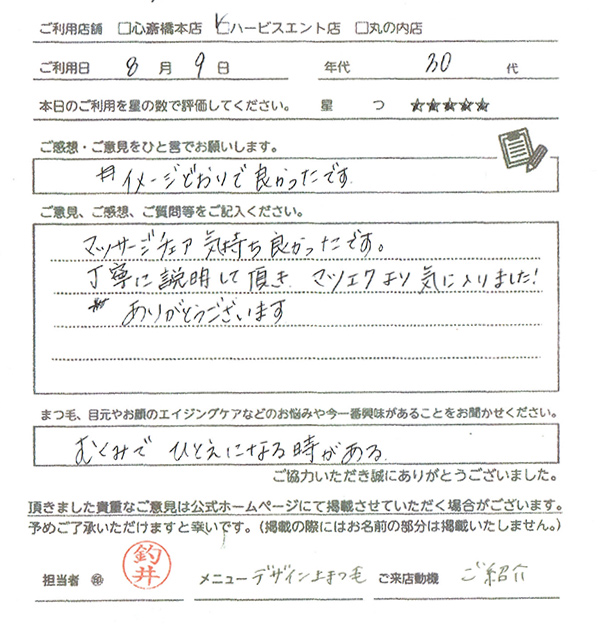 ご利用店舗 □心斎橋本店 ☑ハービスエント店 □丸の内店
ご利用日 8月9日 年代 30代
本日のご利用を星の数で評価してください。 星つ ★★★★★
ご感想・ご意見をひと言でお願いします。
イメージどおりで良かったです
ご意見、ご感想、ご質問等をご記入ください。
マッサージチェア気持ち良かったです。
丁寧に説明して頂き マツエクより気に入りました!
ありがとうございます
まつ毛、目元やお顔のエイジングケアなどのお悩みや今一番興味があることをお聞かせください。
むくみで ひとえになる時がある.
ご協力いただき誠にありがとうございました。
頂きました貴重なご意見は公式ホームページにて掲載させていただく場合がございます。
予めご了承いただけますと幸いです。(掲載の際にはお名前の部分は掲載いたしません。)
担当者 ㊞ 釣井 メニュー デザイン上まつ毛 ご来店動機 ご紹介